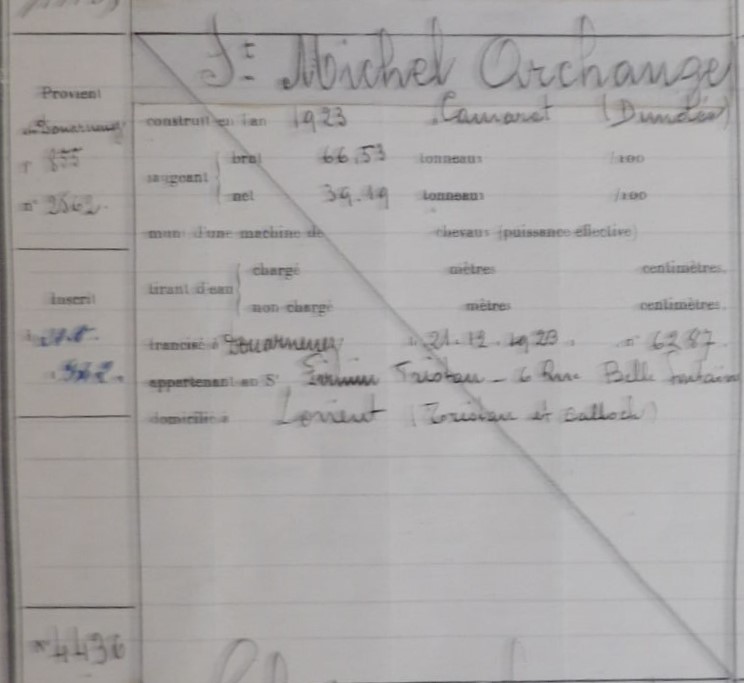 St Michel Archange
Provient
de Douarnenez
construit en l'an 1923 Camaret (Dundée)
f° 855
jaugeant
brut 66,53 tonneaux /100
n° 2562.
net 39.19 tonneaux /100
muni d'une machine de chevaux (puissance effective)
Inscrit
tirant d'eau
chargé mètres centimètres.
non chargé mètres centimètres.
francisé à Douarnenez 21.12.1923 n° 6287.
appartenant au Sr Firmin Tristan - 6 Rue Belle fontaine
domicilié à Lorient (Tristan et Balloch)
n° 4436